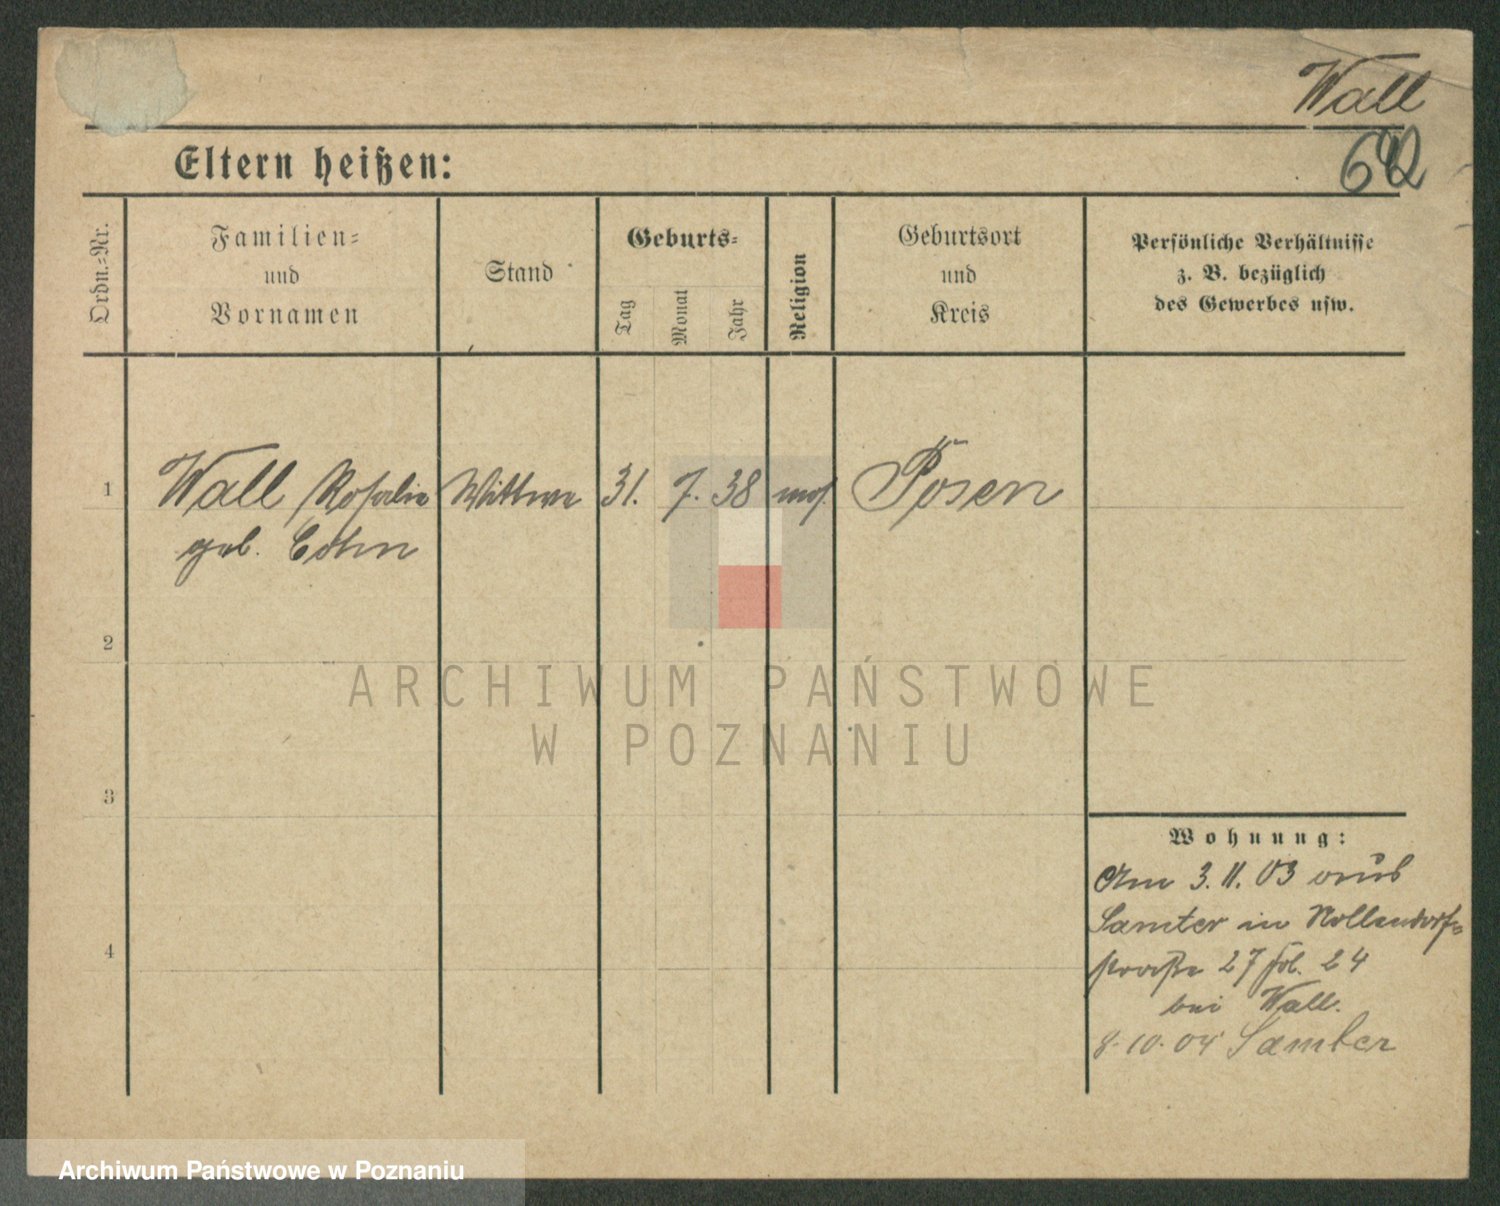 Wall
Eltern heißen:
Ordn.-Nr.
Familien-
und
Vornamen
Stand
Geburts-
Tag
Monat
Jahr
Religion
Geburtsort
und
Kreis
Persönliche Verhältnisse
z. B. bezüglich
des Gewerbes usw.
1
Wall Rosalie Wittwe 31. 7. 38 mos. Posen
geb. Cohn
2
ARCHIWUM PAŃSTWOWE
W POZNANIU
3
4
Wohnung:
Am 3. 11. 03 aus
Samter in Nollendorf-
straße 27 fol. 24
bei Wall.
8.10.04 Samter
Archiwum Państwowe w Poznaniu